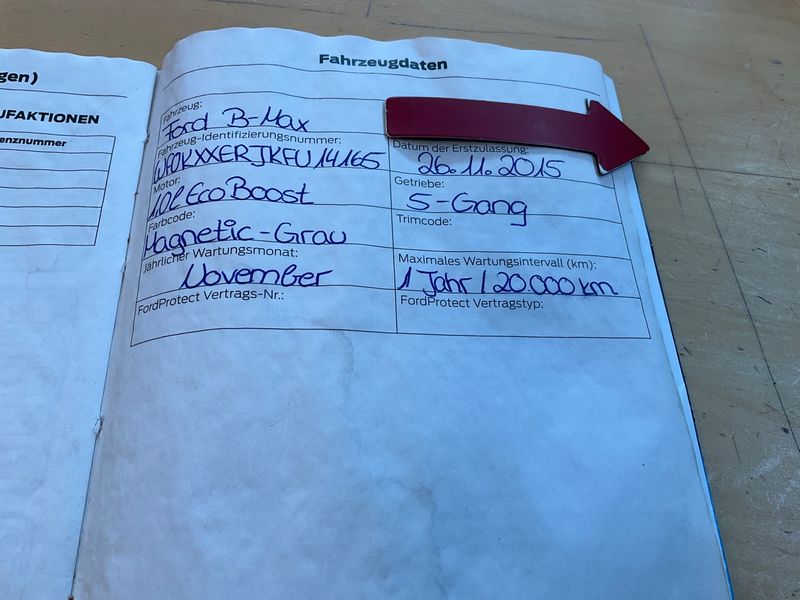 gen)
UFAKTIONEN
enznummer
Fahrzeugdaten
Fahrzeug:
Ford B-Max
Fahrzeug-Identifizierungsnummer:
WF0KXXERJKFU14165
Datum der Erstzulassung:
26.11.2015
Motor:
1,0l EcoBoost
Getriebe:
5-Gang
Farbcode:
Magnetic-Grau
Trimcode:
Jährlicher Wartungsmonat:
November
Maximales Wartungsintervall (km):
1 Jahr / 20.000 km
FordProtect Vertrags-Nr.:
FordProtect Vertragstyp: